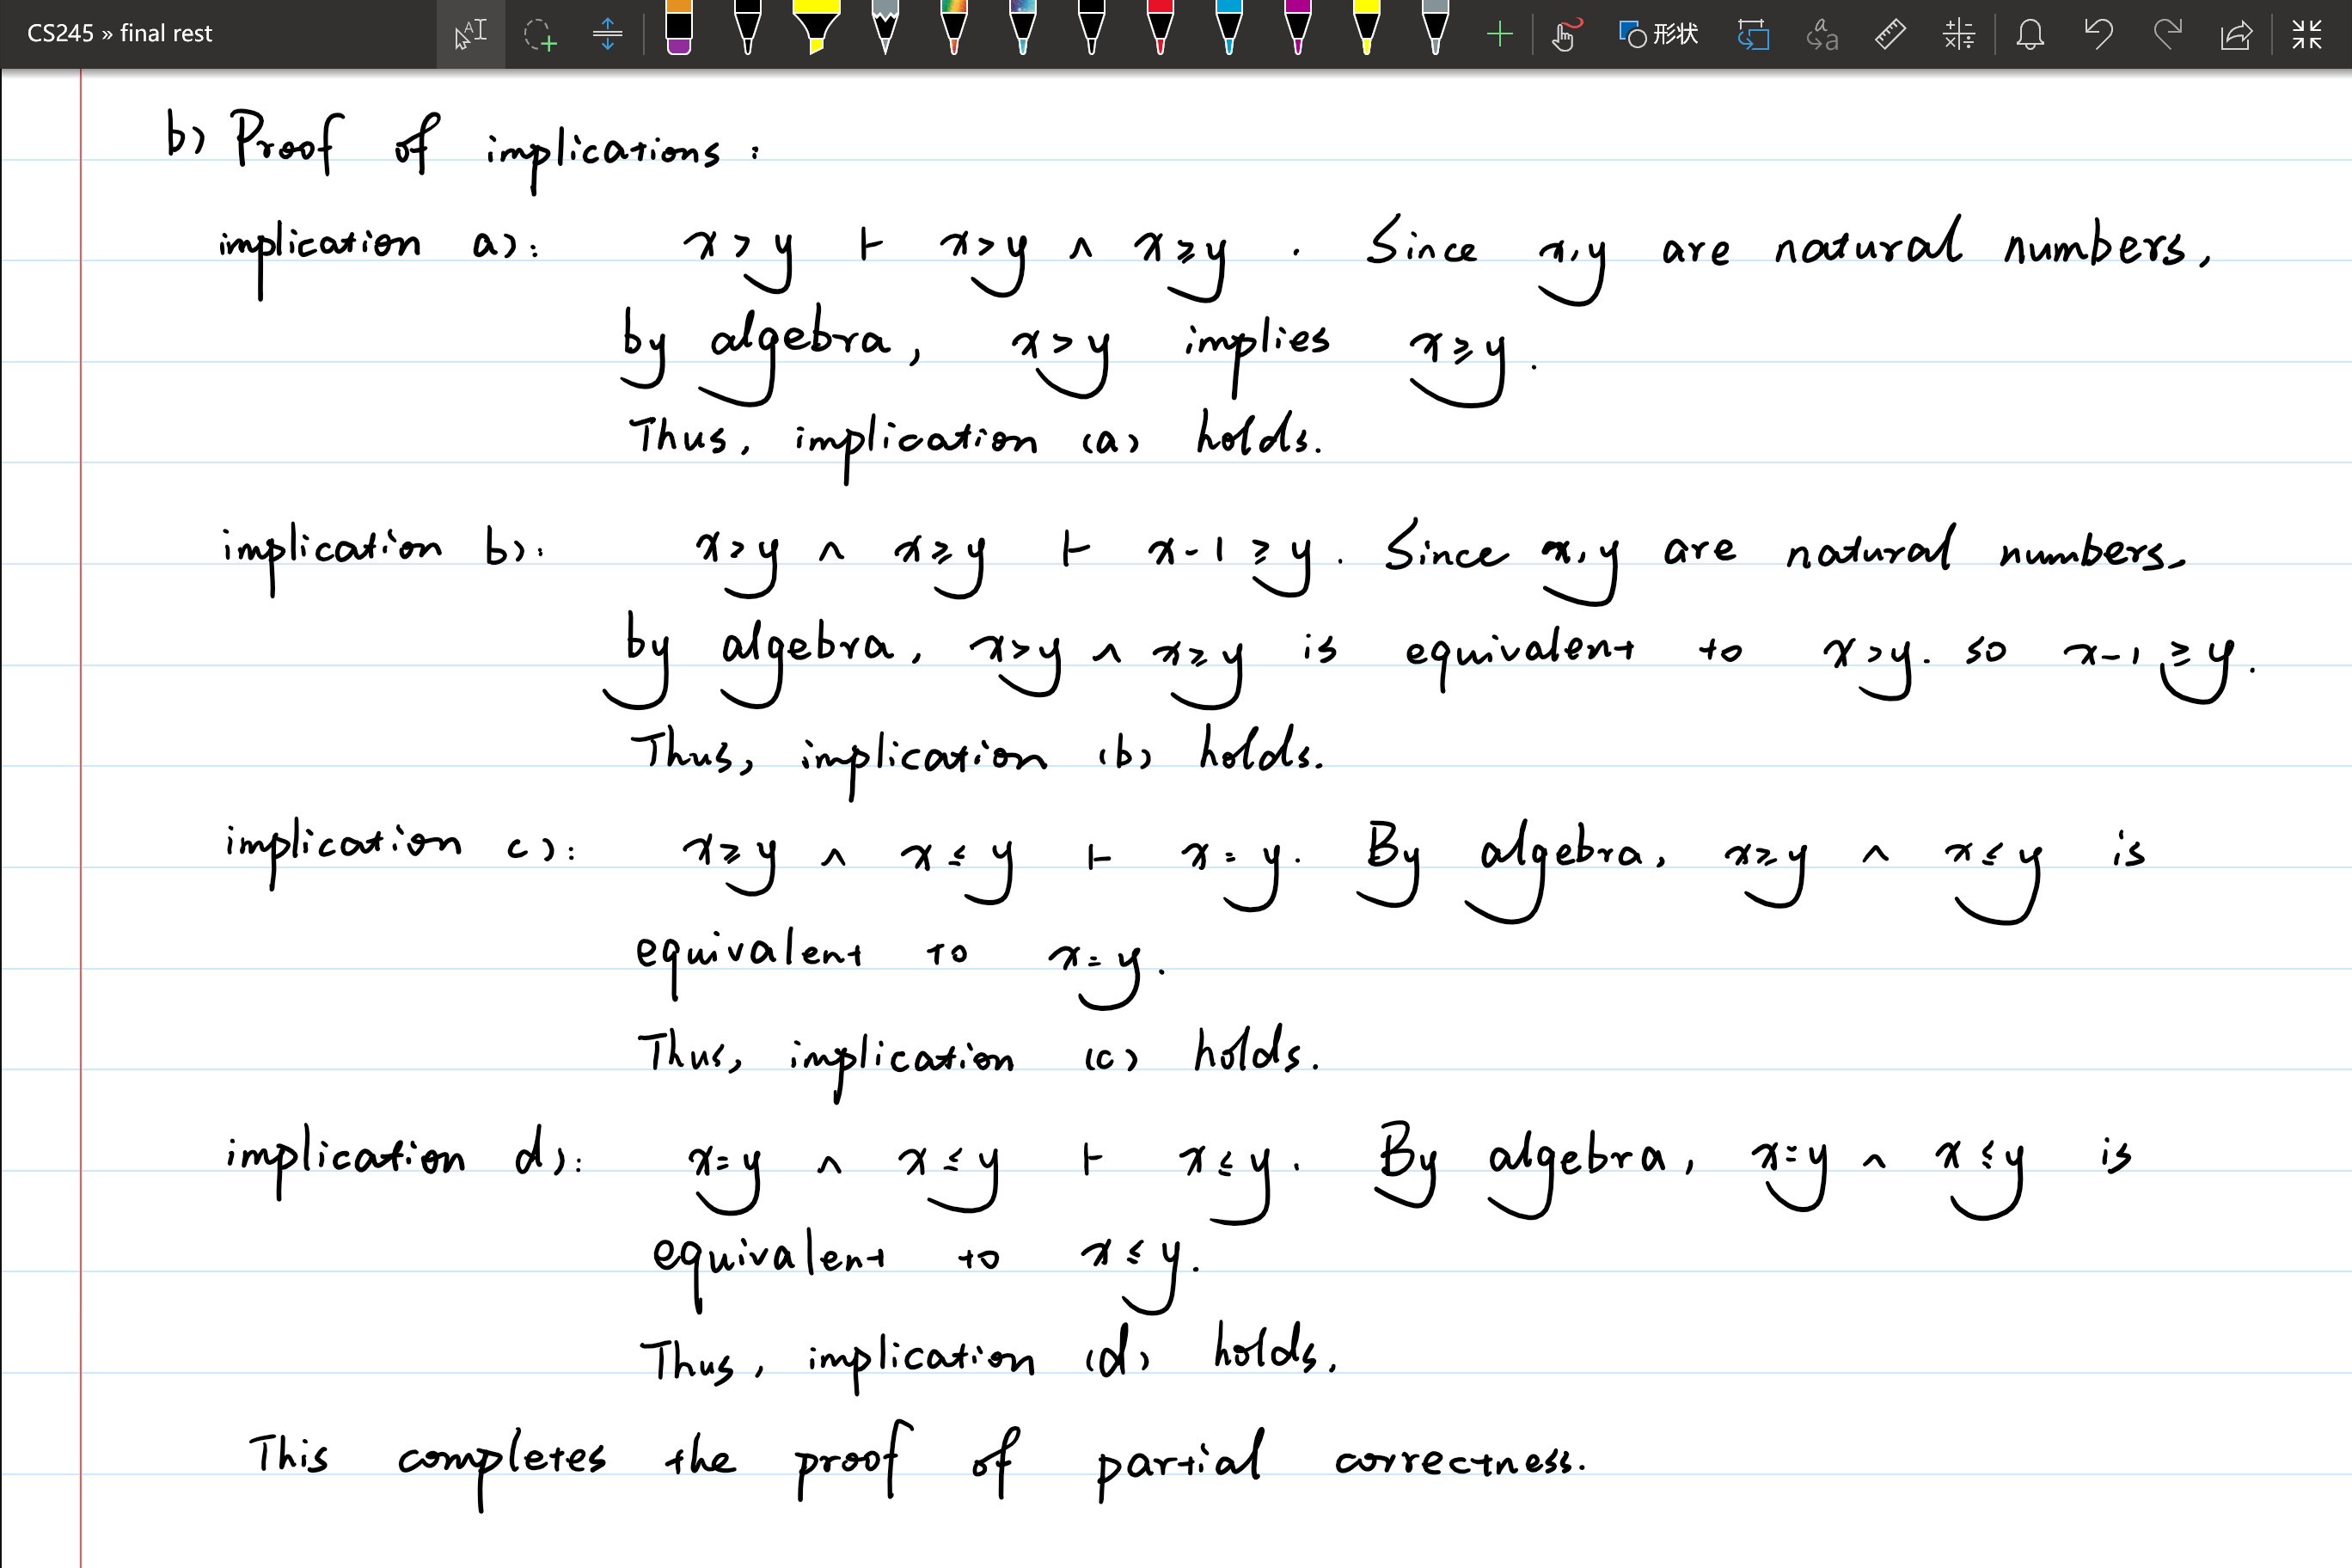 CS245 » final rest
形状
b) Proof of implications :
implication a): x>y ⊢ x>y ∧ x≥y . Since x,y are natural numbers,
by algebra, x>y implies x≥y.
Thus, implication (a) holds.
implication b): x>y ∧ x≥y ⊢ x-1≥y. Since x,y are natural numbers.
by algebra, x>y ∧ x≥y is equivalent to x>y. so x-1≥y.
Thus, implication (b) holds.
implication c): x≥y ∧ x≤y ⊢ x=y. By algebra, x≥y ∧ x≤y is
equivalent to x=y.
Thus, implication (c) holds.
implication d): x=y ∧ x≤y ⊢ x≤y. By algebra, x=y ∧ x≤y is
equivalent to x≤y.
Thus, implication (d) holds.
This completes the proof of partial correctness.